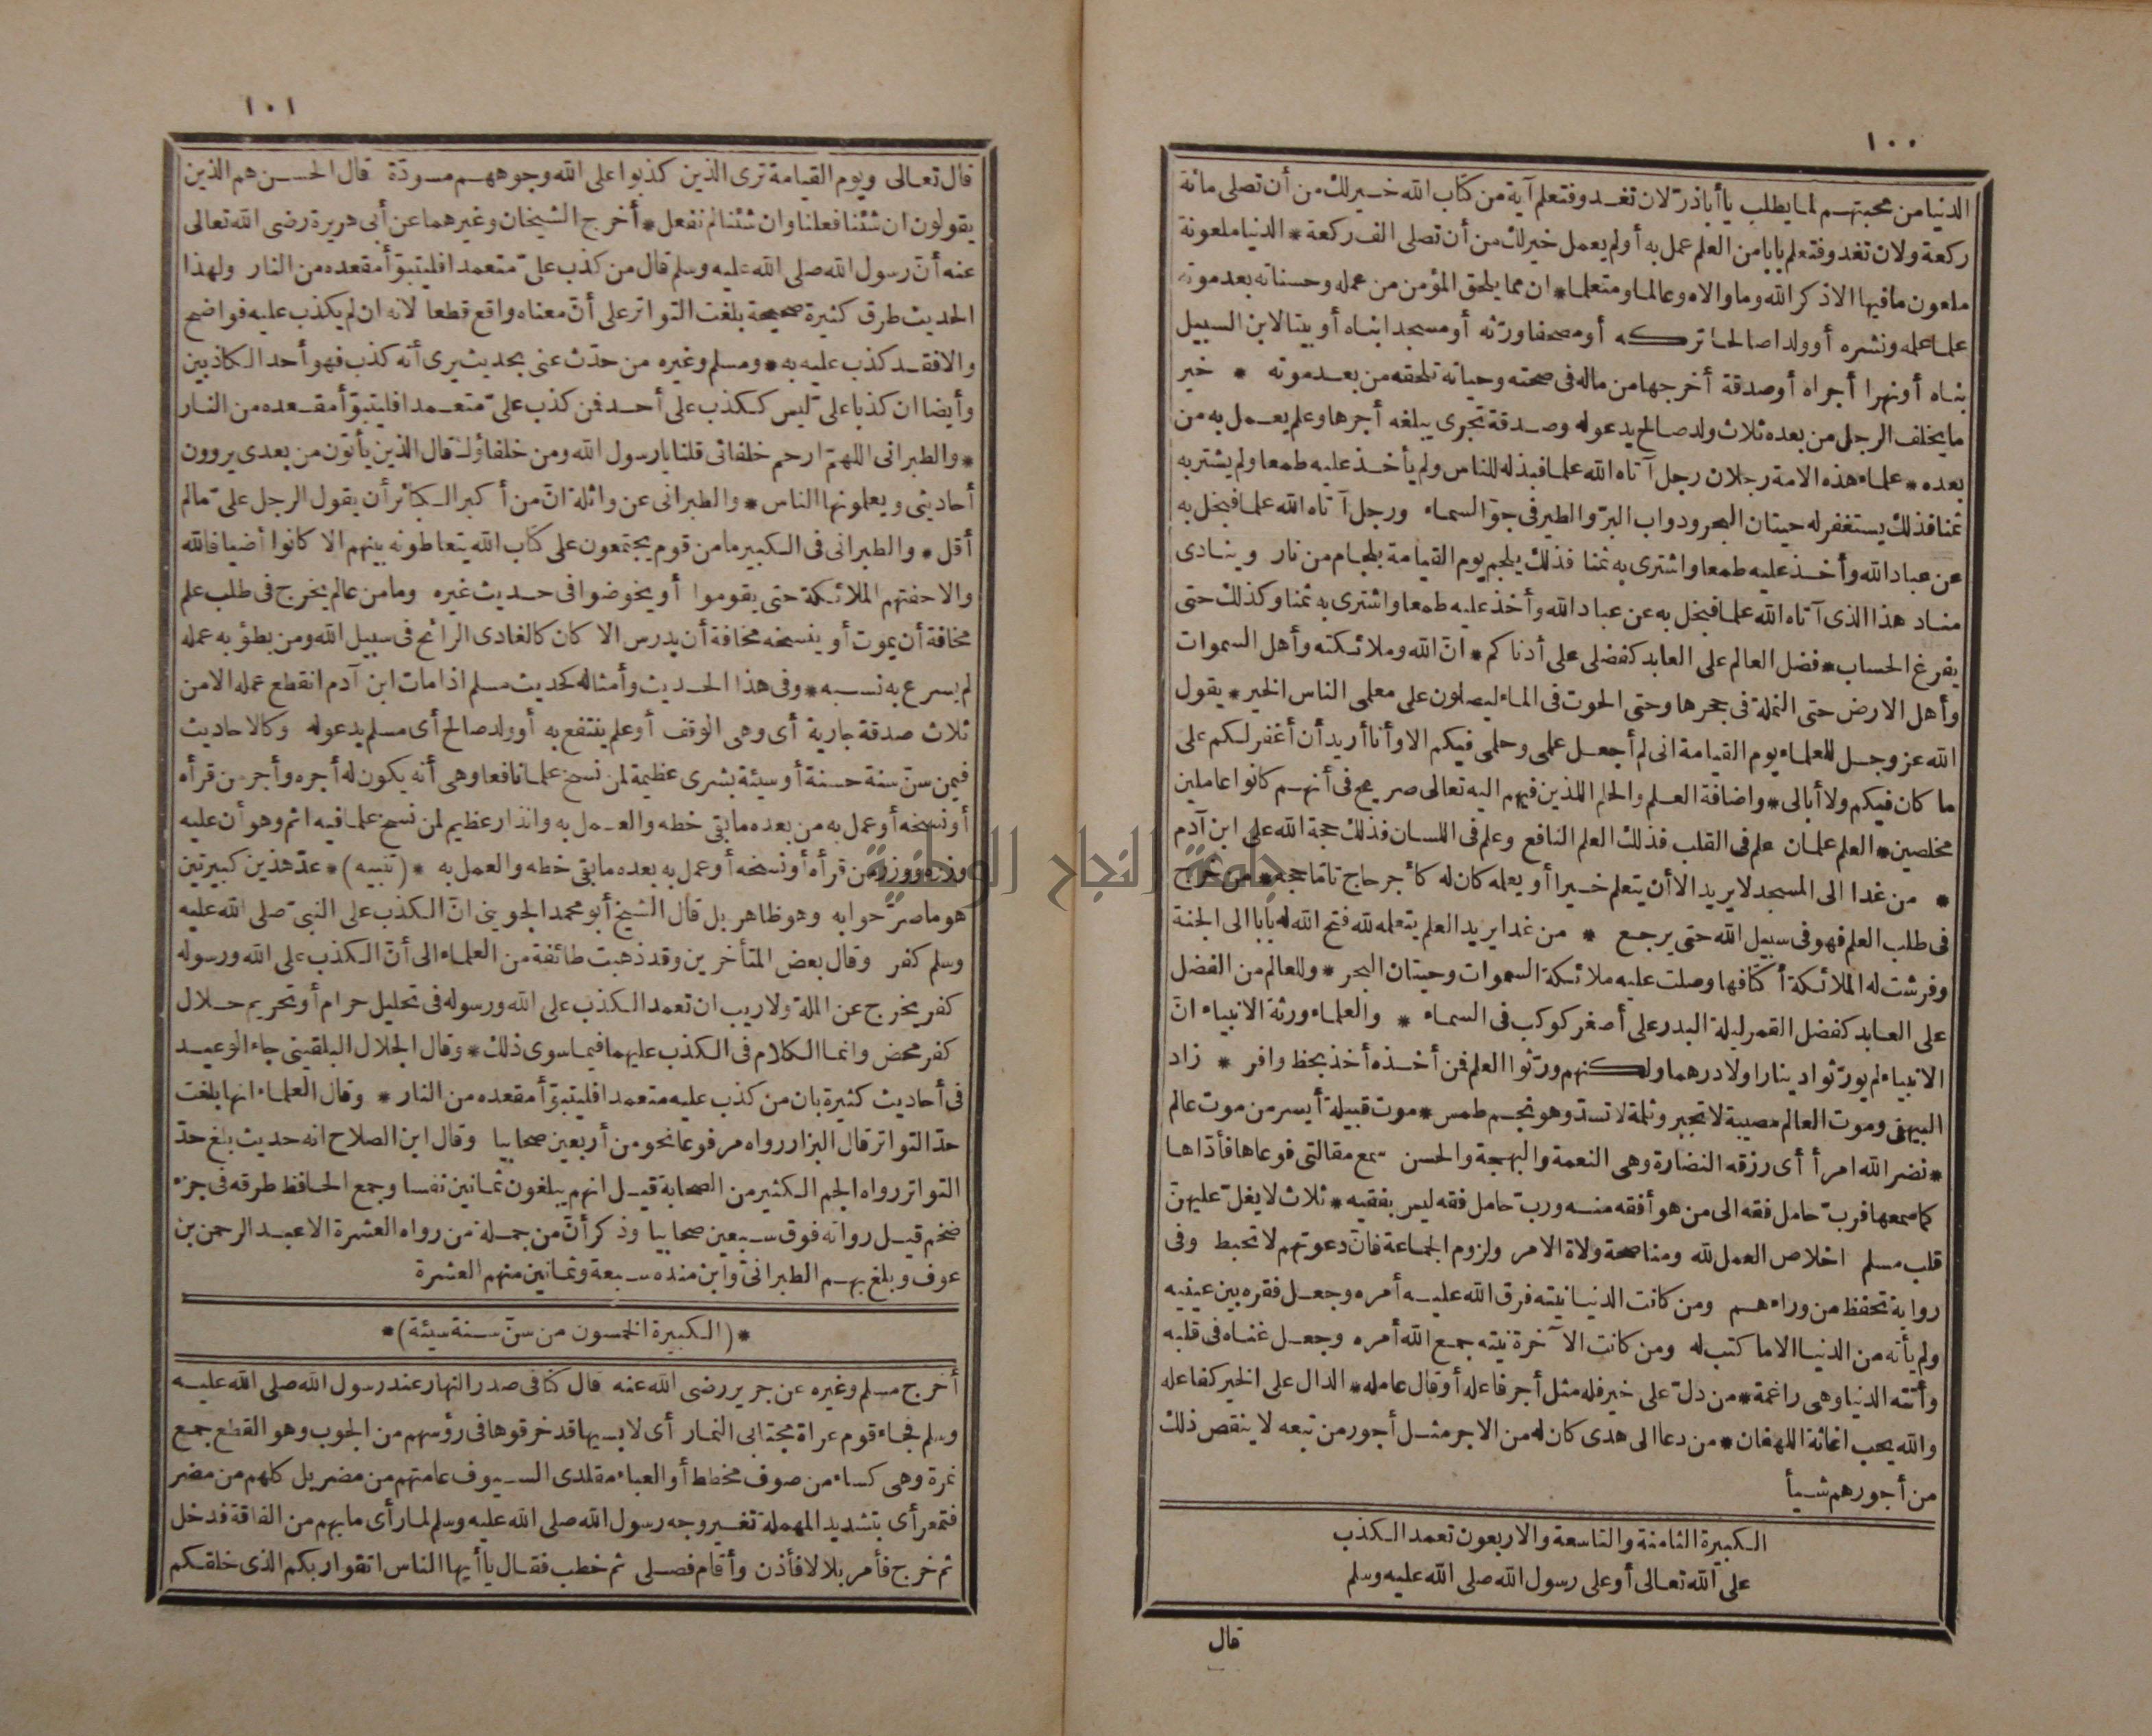 ١٠٠
الدنيا من محبتهم لما يطلب يا أباذر لان تغدو فتعلم آية من كتاب الله خير لك من أن تصلى مائة
ركعة ولان تغدو فتعلم بابا من العلم عمل به أولم يعمل خير لك من أن تصلى الف ركعة * الدنيا ملعونة
ملعون مافيها الا ذكر الله وما والاه وعالما ومتعلما * ان مما يلحق المؤمن من عمله وحسناته بعد موته
علما علمه ونشره أو ولدا صالحا تركه أو مصحفا ورثه أو مسجدا بناه أو بيتا لابن السبيل
بناه أونهرا أجراه أوصدقة أخرجها من ماله فى صحته وحياته تلحقه من بعد موته * خير
ما يخلف الرجل من بعده ثلاث ولد صالح يدعوله وصدقة تجرى يبلغه أجرها وعلم يعمل به من
بعده * علماء هذه الامة رجلان رجل آتاه الله علما فبذله للناس ولم يأخذ عليه طمعا ولم يشتر به
ثمنا فذلك يستغفر له حيتان البحر ودواب البرّ والطير فى جوّ السماء ورجل آتاه الله علما فبخل به
عن عباد الله وأخذ عليه طمعا واشترى به ثمنا فذلك يلجم يوم القيامة بلجام من نار وينادى
مناد هذا الذى آتاه الله علما فبخل به عن عباد الله وأخذ عليه طمعا واشترى به ثمنا وكذلك حتى
يفرغ الحساب * فضل العالم على العابد كفضلى على أدناكم * انّ الله وملائكته وأهل السموات
وأهل الارض حتى النملة فى جحرها وحتى الحوت فى الماء ليصلون على معلمى الناس الخير * يقول
الله عز وجل للعلماء يوم القيامة انى لم أجعل علمى وحلمى فيكم الا وأنا أريد أن أغفر لكم على
ما كان فيكم ولا أبالى * واضافة العلم والحلم اللذين فيهم اليه تعالى صريح فى أنهم كانوا عاملين
مخلصين * العلم علمان علم فى القلب فذلك العلم النافع وعلم فى اللسان فذلك حجة الله على ابن آدم
* من غدا الى المسجد لايريد الا أن يتعلم خيرا أو يعلمه كان له كأجر حاج تاما حجه * من خرج
فى طلب العلم فهو فى سبيل الله حتى يرجع * من غدا يريد العلم يتعلمه لله فتح الله له بابا الى الجنة
وفرشت له الملائكة أكنافها وصلت عليه ملائكة السموات وحيتان البحر * وللعالم من الفضل
على العابد كفضل القمر ليلة البدر على أصغر كوكب فى السماء * والعلماء ورثة الانبياء انّ
الانبياء لم يورّثوا دينارا ولا درهما ولكنهم ورّثوا العلم فمن أخذه أخذ بحظ وافر * زاد
البيهقى وموت العالم مصيبة لا تجبر وثلمة لا تسدّ وهو نجم طمس * موت قبيلة أيسر من موت عالم
* نضر الله امرأ أى رزقه النضارة وهى النعمة والبهجة والحسن سمع مقالتى فوعاها فأدّاها
كما سمعها فربّ حامل فقه الى من هو أفقه منه وربّ حامل فقه ليس بفقيه * ثلاث لا يغلّ عليهنّ
قلب مسلم اخلاص العمل لله ومناصحة ولاة الامر ولزوم الجماعة فانّ دعوتهم لا تحبط وفى
رواية تحفظ من وراءهم ومن كانت الدنيا نيته فرق الله عليه أمره وجعل فقره بين عينيه
ولم يأته من الدنيا الا ما كتب له ومن كانت الآخرة نيته جمع الله أمره وجعل غناه فى قلبه
وأتته الدنيا وهى راغمة * من دلّ على خير فله مثل أجر فاعله أو قال عامله * الدال على الخير كفاعله
والله يحب اغاثة اللهفان * من دعا الى هدى كان له من الاجر مثل أجور من تبعه لا ينقص ذلك
من أجورهم شيأ
الكبيرة الثامنة والتاسعة والاربعون تعمد الكذب
على الله تعالى أو على رسول الله صلى الله عليه وسلم
قال
١٠١
قال تعالى ويوم القيامة ترى الذين كذبوا على الله وجوههم مسودّة قال الحسن هم الذين
يقولون ان شئنا فعلنا وان شئنا لم نفعل * أخرج الشيخان وغيرهما عن أبى هريرة رضى الله تعالى
عنه أنّ رسول الله صلى الله عليه وسلم قال من كذب علىّ متعمدا فليتبوّأ مقعده من النار ولهذا
الحديث طرق كثيرة صحيحة بلغت التواتر على أنّ معناه واقع قطعا لانه ان لم يكذب عليه فواضح
والا فقد كذب عليه به * ومسلم وغيره من حدّث عنى بحديث يرى أنه كذب فهو أحد الكاذبين
وأيضا ان كذبا علىّ ليس ككذب على أحد فمن كذب علىّ متعمدا فليتبوّأ مقعده من النار
* والطبرانى اللهمّ ارحم خلفائى قلنا يارسول الله ومن خلفاؤك قال الذين يأتون من بعدى يروون
أحاديثى ويعلمونها الناس * والطبرانى عن واثلة انّ من أكبر الكبائر أن يقول الرجل علىّ مالم
أقل * والطبرانى فى الكبير ما من قوم يجتمعون على كتاب الله يتعاطونه بينهم الا كانوا أضيافا لله
والا حفتهم الملائكة حتى يقوموا أو يخوضوا فى حديث غيره وما من عالم يخرج فى طلب علم
مخافة أن يموت أو ينسخه مخافة أن يدرس الا كان كالغادى الرائح فى سبيل الله ومن بطؤ به عمله
لم يسرع به نسبه * وفى هذا الحديث وأمثاله كحديث مسلم اذا مات ابن آدم انقطع عمله الا من
ثلاث صدقة جارية أى وهى الوقف أو علم ينتفع به أو ولد صالح أى مسلم يدعوله وكالاحاديث
فيمن سنّ سنة حسنة أو سيئة بشرى عظيمة لمن نسخ علما نافعا وهى أنه يكون له أجره وأجر من قرأه
أو نسخه أو عمل به من بعده ما بقى خطه والعمل به وانذار عظيم لمن نسخ علما فيه اثم وهو أن عليه
وزره ووزر من قرأه أو نسخه أو عمل به بعده ما بقى خطه والعمل به * (تنبيه) * عدّ هذين كبيرتين
هو ما صرّحوا به وهو ظاهر بل قال الشيخ أبو محمد الجوينى انّ الكذب على النبىّ صلى الله عليه
وسلم كفر وقال بعض المتأخرين وقد ذهبت طائفة من العلماء الى أنّ الكذب على الله ورسوله
كفر يخرج عن الملة ولا ريب ان تعمد الكذب على الله ورسوله فى تحليل حرام أو تحريم حلال
كفر محض وانما الكلام فى الكذب عليهما فيما سوى ذلك * وقال الجلال البلقينى جاء الوعيد
فى أحاديث كثيرة بان من كذب عليه متعمدا فليتبوّأ مقعده من النار * وقال العلماء انها بلغت
حدّ التواتر قال البزار رواه مرفوعا نحو من أربعين صحابيا وقال ابن الصلاح انه حديث بلغ حدّ
التواتر رواه الجم الكثير من الصحابة قيل انهم يبلغون ثمانين نفسا وجمع الحافظ طرقه فى جزء
ضخم قيل رواته فوق سبعين صحابيا وذكر أنّ من جملة من رواه العشرة الا عبد الرحمن بن
عوف وبلغ بهم الطبرانىّ وابن منده سبعة وثمانين منهم العشرة
* (الكبيرة الخمسون من سنّ سنة سيئة) *
أخرج مسلم وغيره عن جرير رضى الله عنه قال كنا فى صدر النهار عند رسول الله صلى الله عليه
وسلم فجاءه قوم عراة مجتابى النمار أى لابسيها قد خرقوها فى رؤسهم من الجوب وهو القطع جمع
نمرة وهى كساء من صوف مخطط أو العباء مقلدى السيوف عامتهم من مضر بل كلهم من مضر
فتمعر أى بتشديد المهملة تغير وجه رسول الله صلى الله عليه وسلم لما رأى ما بهم من الفاقة فدخل
ثم خرج فأمر بلالا فأذن وأقام فصلى ثم خطب فقال يا أيها الناس اتقوا ربكم الذى خلقكم
جامعة النجاح الوطنية